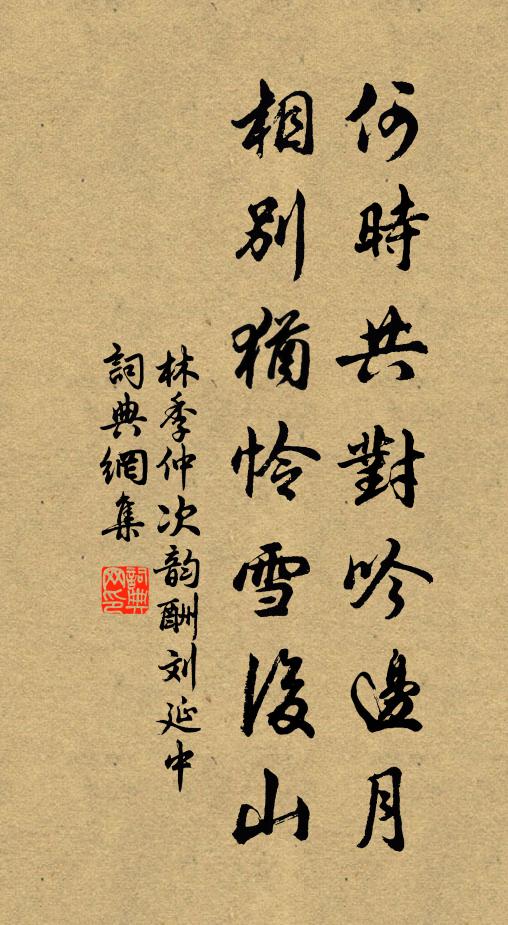 何時共對吟邊月
相別猶怜雪後山
林季仲次韵酬刘延中
詞典網集
詞典网印